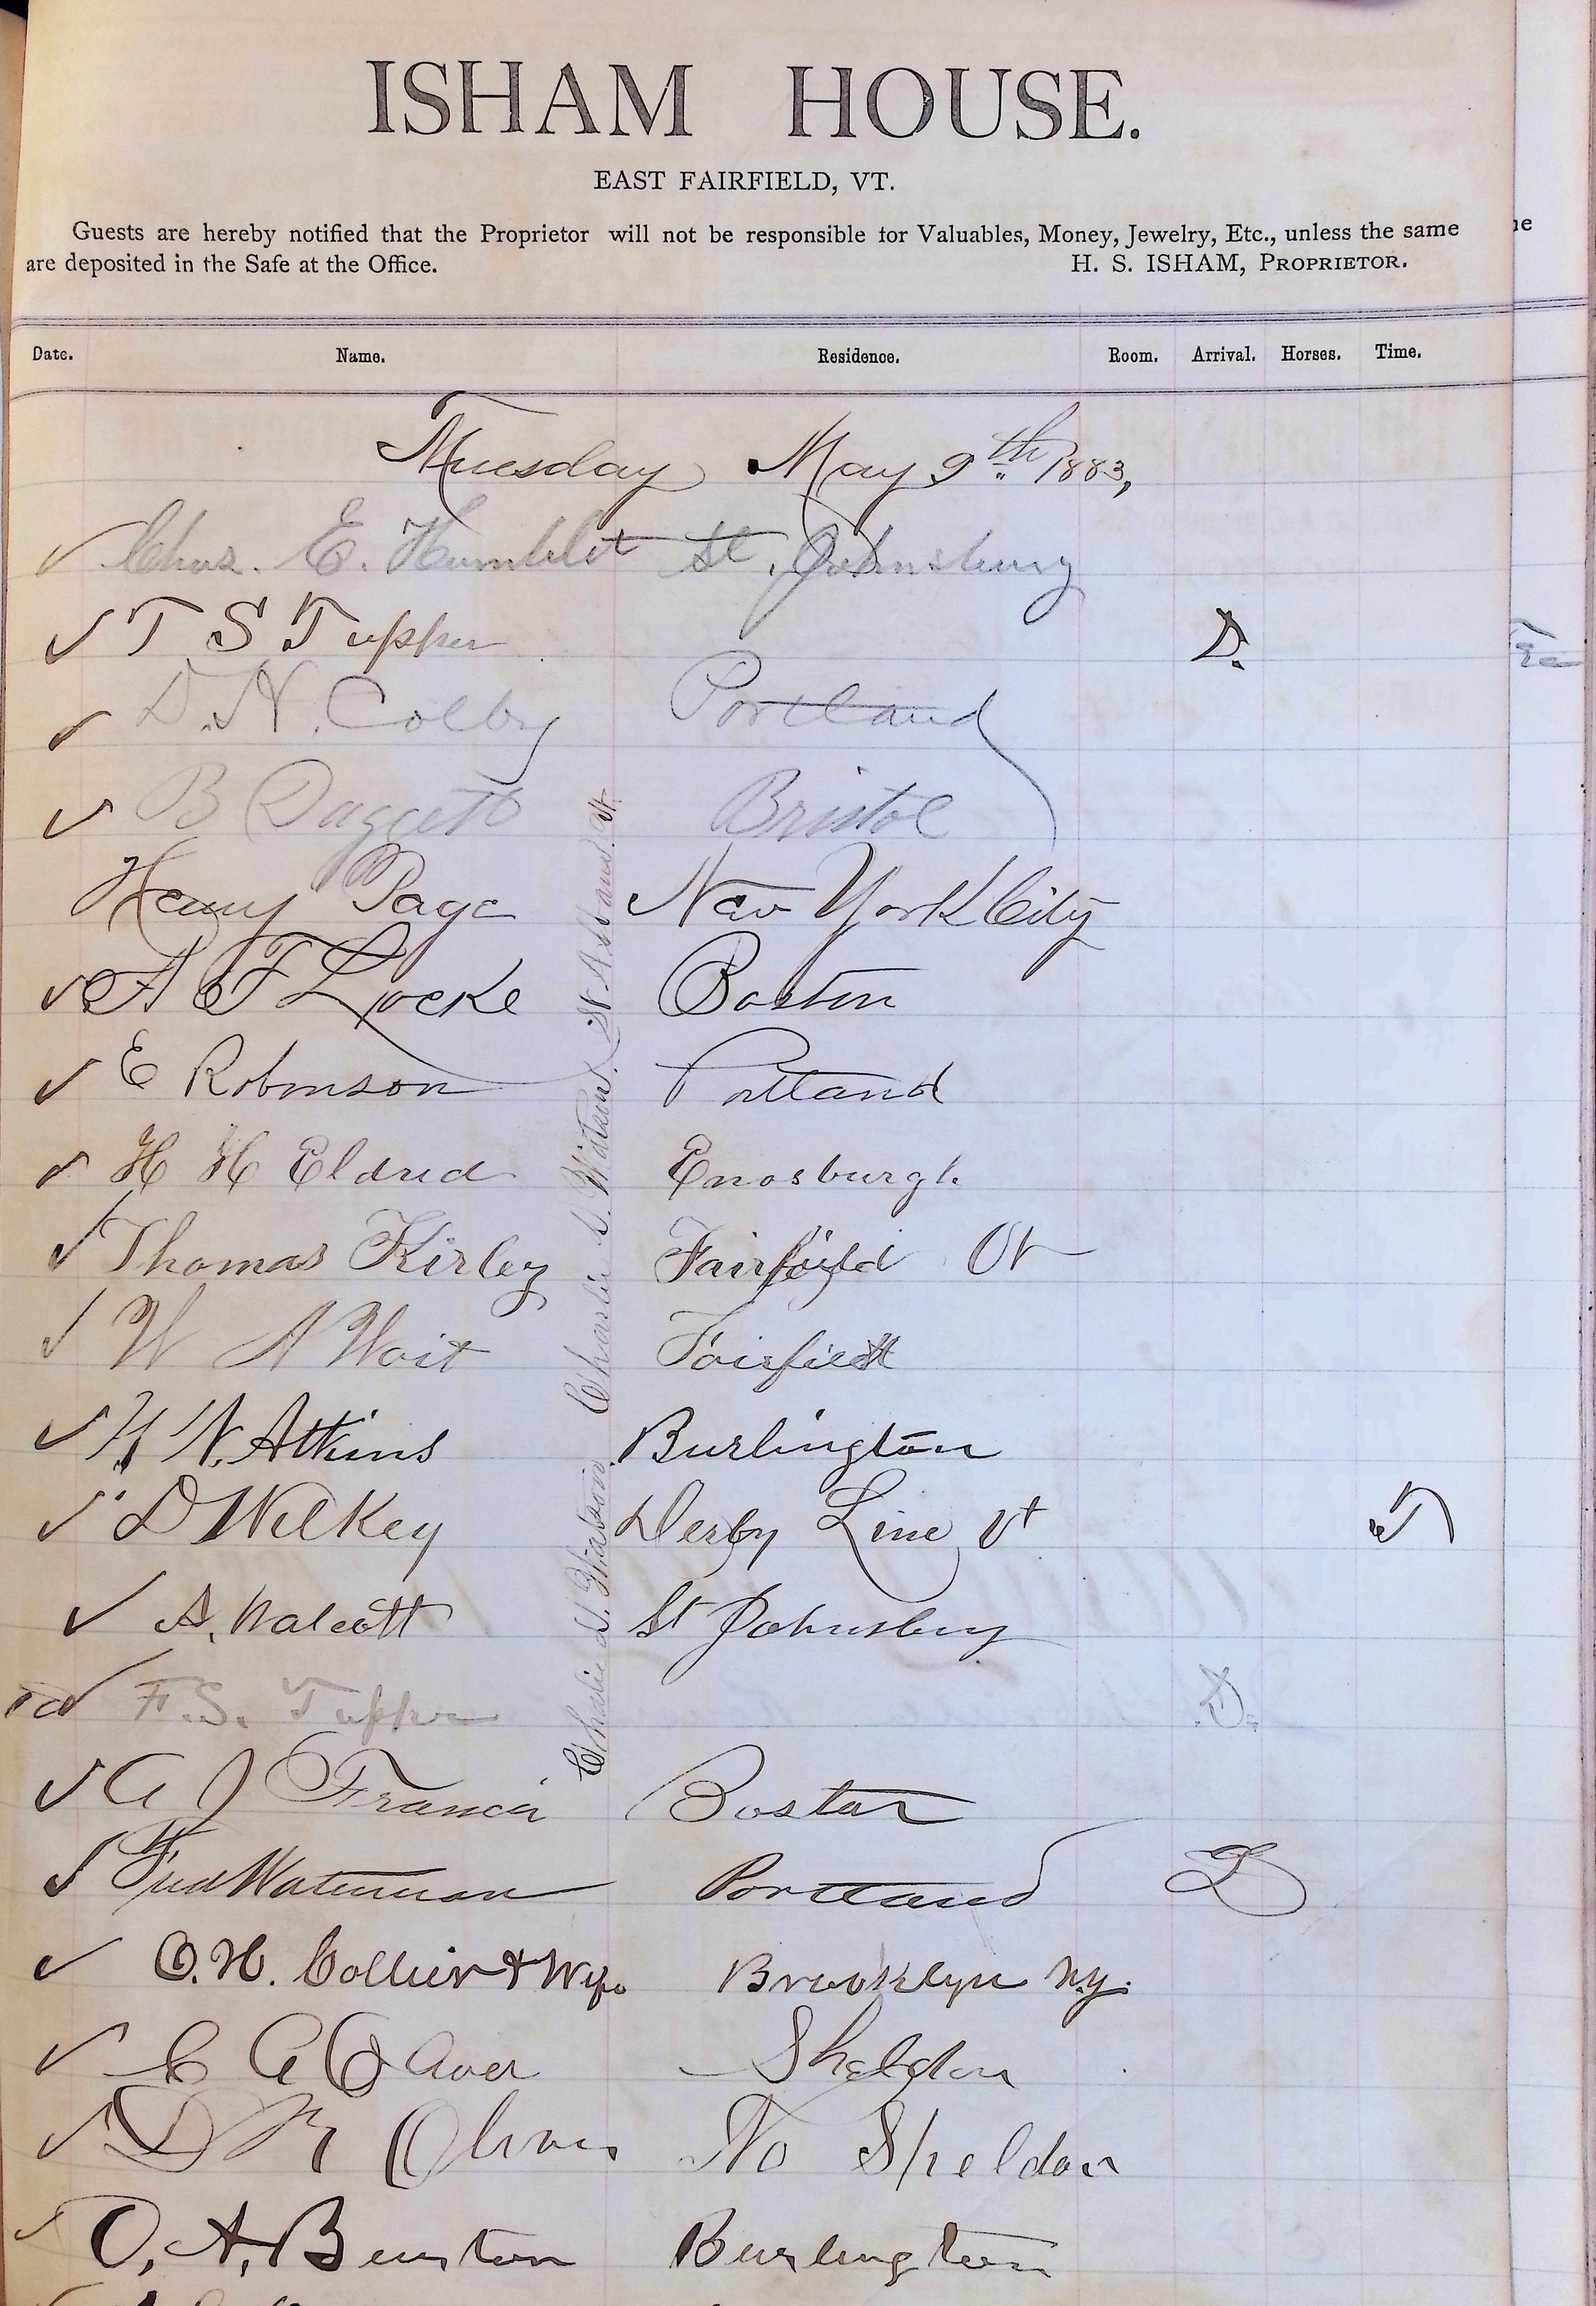 ISHAM HOUSE.
EAST FAIRFIELD, VT.
Guests are hereby notified that the Proprietor will not be responsible for Valuables, Money, Jewelry, Etc., unless the same
are deposited in the Safe at the Office. H. S. ISHAM, PROPRIETOR.
Date. Name. Residence. Room. Arrival. Horses. Time.
Tuesday May 9th 1883,
Chas. E. Humblet St. Johnsbury
T S Tupper D.
D. N. Colby Portland
B Daggett Bristol
Henry Page New York City
A F Locke Boston
E Robinson Portland
H H Eldred Enosburgh
Thomas Kirley Fairfield Vt
W A Wait Fairfield
H. N. Atkins Burlington
D Wilkey Derby Line Vt
A. Walcott St Johnsbury
F. S. Tupper D.
A J Francis Boston
Fred Waterman Portland D
O. H. Collier & Wife Brooklyn N.y.
C A Sheldon
D No Sheldon
O. A. Burton Burlington
Charlie S. Watson Charlie S. Watson. St Albans. Vt.